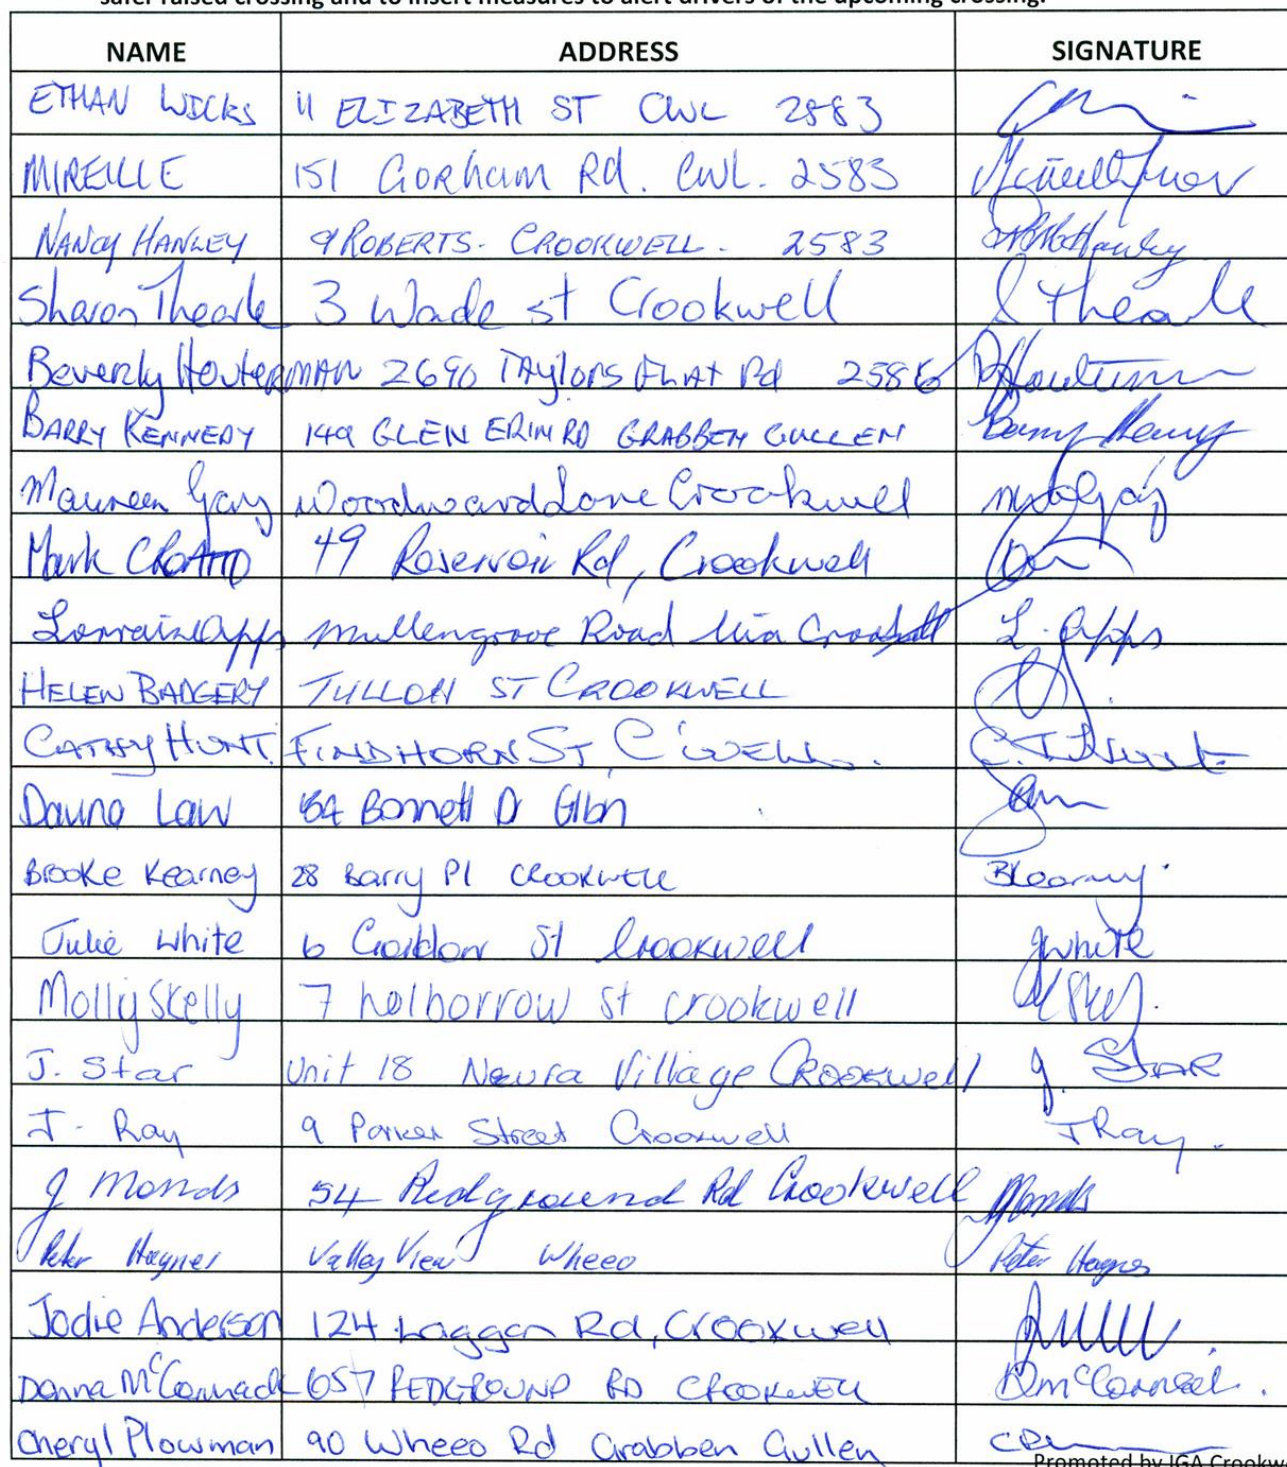 safer raised crossing and to insert measures to alert drivers of the upcoming crossing.
NAME ADDRESS SIGNATURE
ETHAN WICKS 11 ELIZABETH ST CWL 2583
MIREILLE 151 Gorham Rd. CWL. 2583
NANCY HANLEY 9 ROBERTS. CROOKWELL. 2583
Sharon Thearle 3 Wade st Crookwell S Thearle
Beverly HouterMAN 2690 TAylors FLAt Rd 2586
BARRY KENNEDY 149 GLEN ERIN RD GRABBEN GULLEN
Maureen Gay Woodward Lane Crookwell
Mark 49 Reservoir Rd, Crookwell
Lorraine Apps Mullengrove Road Via L. Apps
HELEN BADGERY TULLOH ST CROOKWELL
CATHY HUNT. FINDHORN ST C'WELL. C. J. Hunt
Law Bonnett D Glbn
Brooke Kearney 28 Barry Pl CROOKWELL BKearney.
Julie White 6 Gordon St Crookwell JWhite
Molly Skelly 7 holborrow st crookwell
J. Star Unit 18 Village Crookwell J. STAR
J. Ray 9 Parker Street Crookwell J Ray.
J Monds 54 Redground Rd Crookwell JMonds
Peter Valley View Wheeo Peter
Jodie Anderson 124 Laggan Rd, Crookwell
Donna McCormack 657 REDGROUND RD CROOKWELL
Cheryl Plowman 90 Wheeo Rd Grabben Gullen
Promoted by IGA